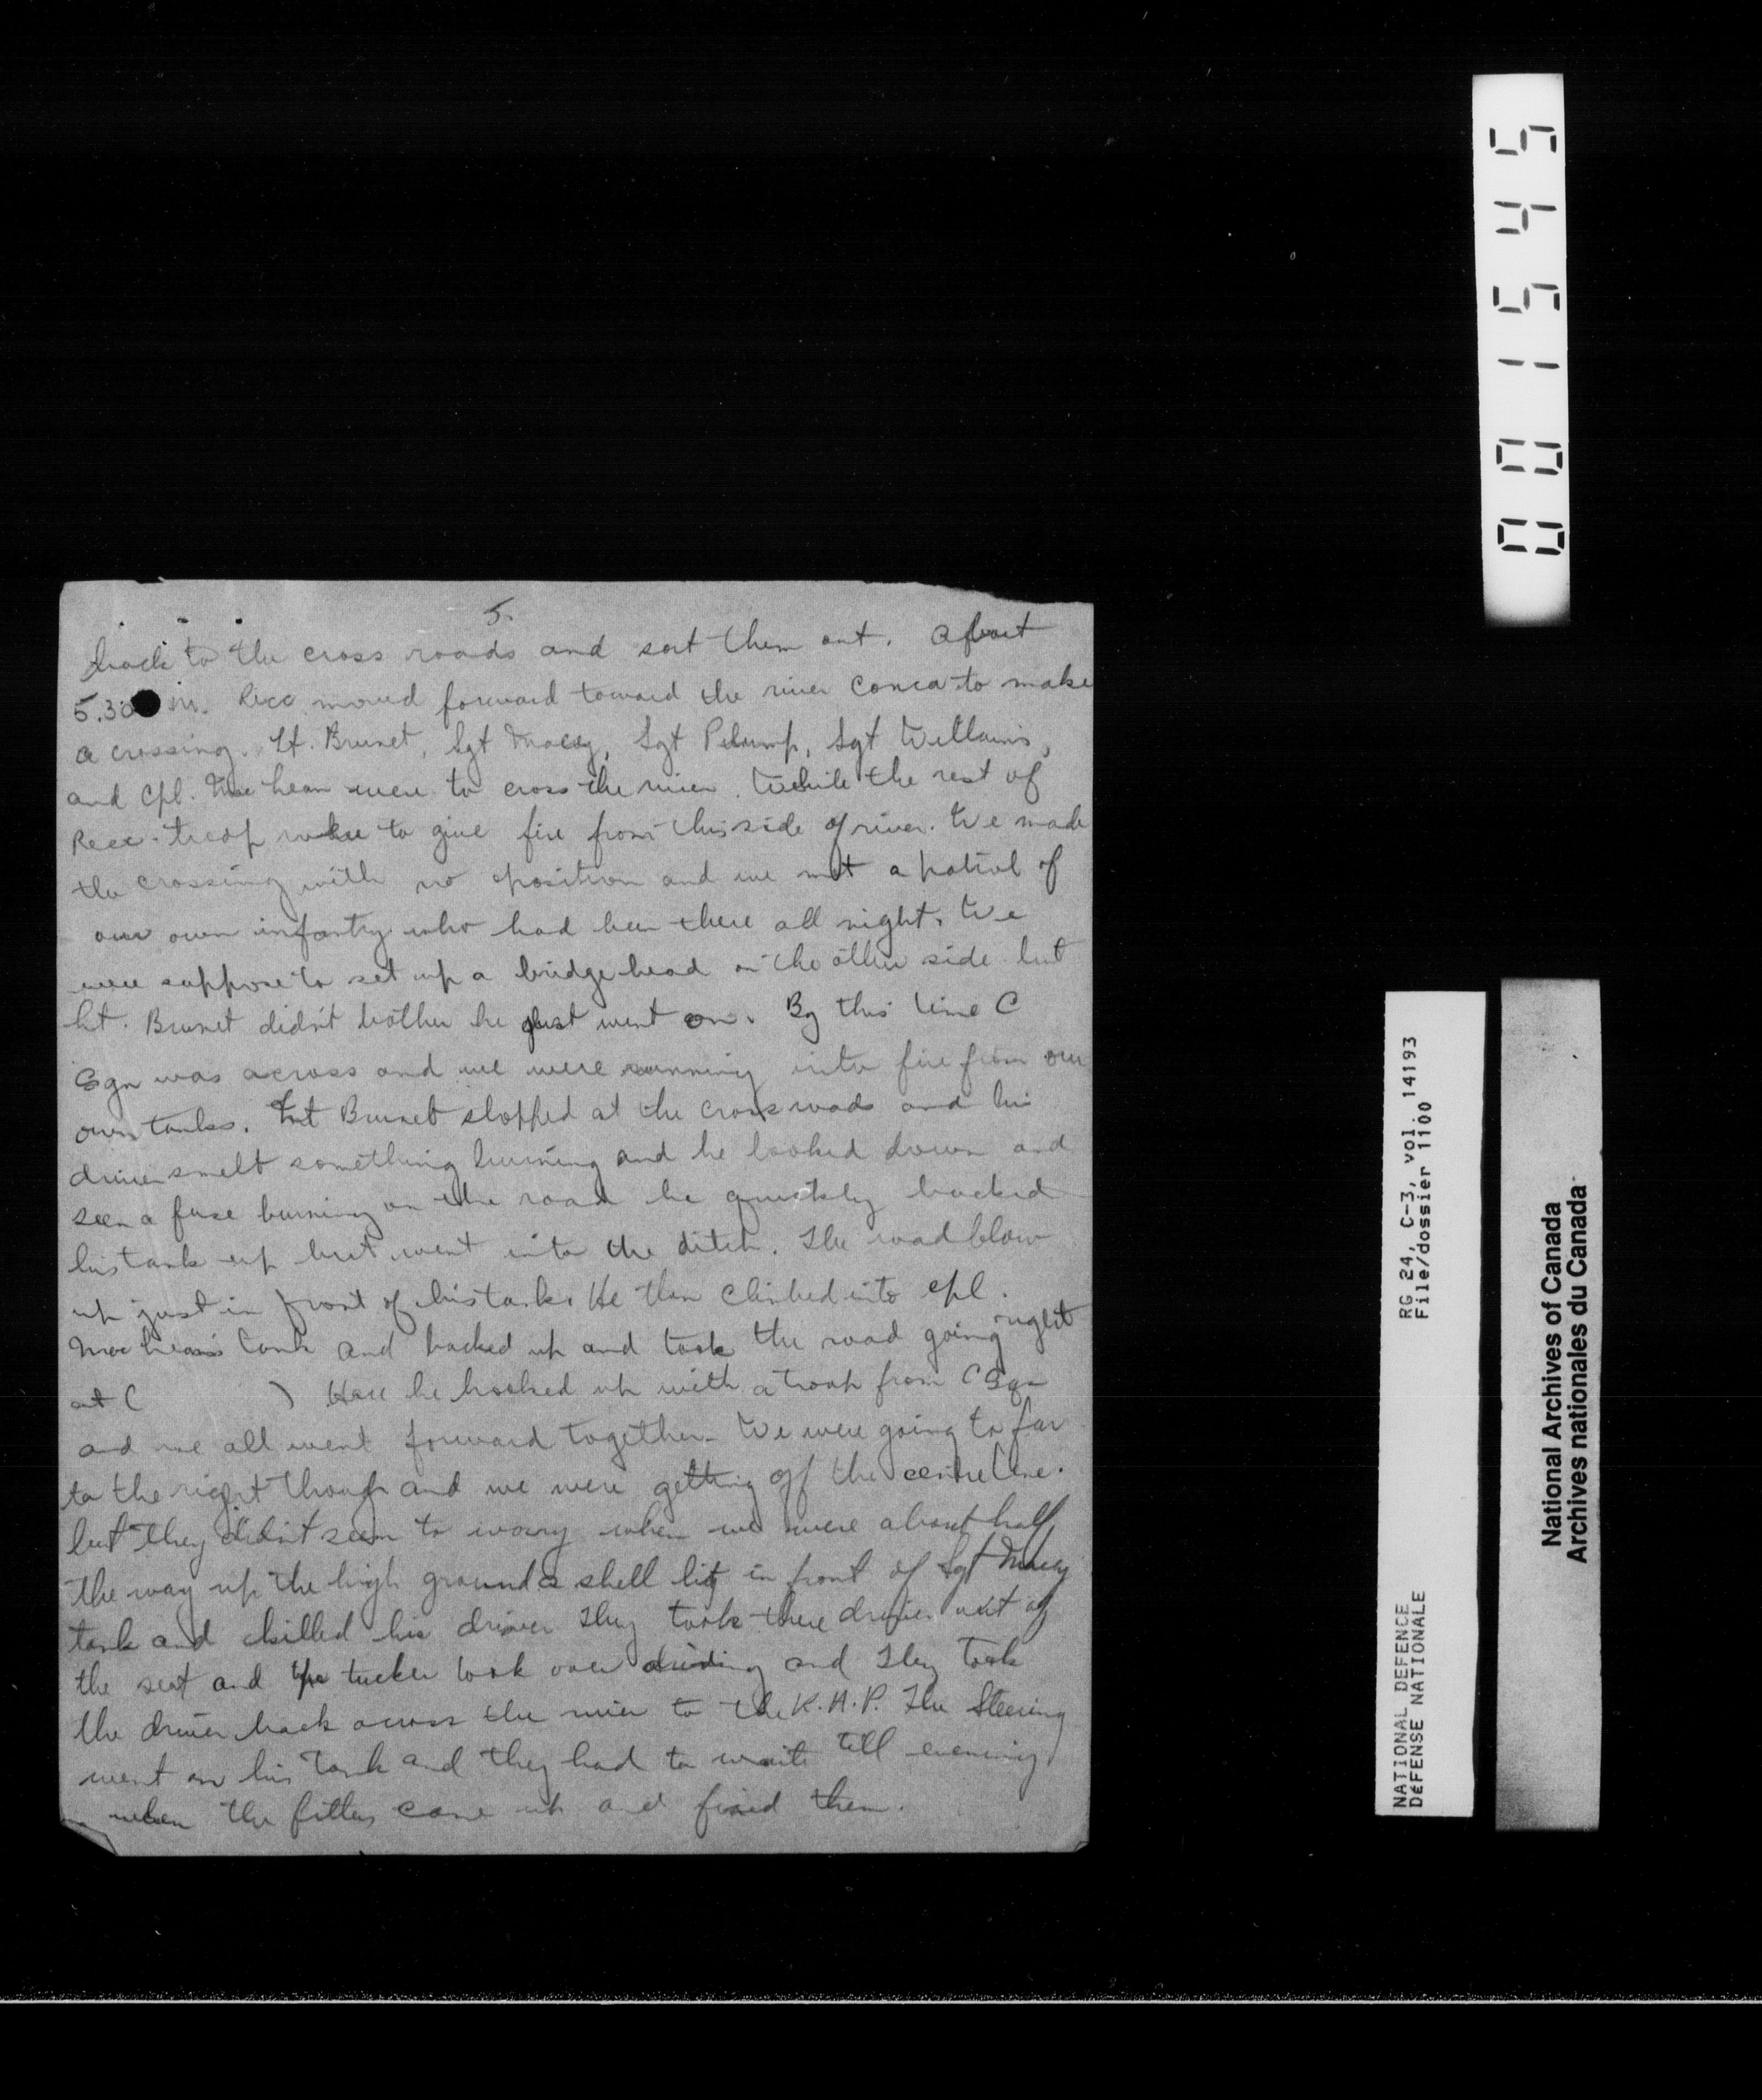 5.
back to the cross roads and sort them out. About
5.30 m. Recc moved forward toward the river Conca to make
a crossing. Lt. Brunet, Sgt Macey, Sgt Sgt Williams,
and Cpl. MacLean were to cross the river. While the rest of
Recc. troop were to give fire from this side of river. We made
the crossing with no oposition and we met a patrol of
our own infantry who had been there all night. We
were suppose to set up a bridge head on the other side but
Lt. Brunet didn't bother he just went on. By this time C
Sqn was across and we were running into fire from our
own tanks. Lt Brunet stopped at the cross roads and his
driver smelt something burning and he looked down and
seen a fuse burning on the road he quickly backed
his tank up but went into the ditch. The road blow
up just in front of his tank. He then climbed into cpl.
MacLean's tank and backed up and took the road going right
at ( ) Here he hooked up with a troop from C Sqn
and we all went forward together. We were going to far
to the right though and we were getting off the centre line.
but they didn't seem to worry when we were about half
the way up the high ground a shell lit in front of Sgt Macey
tank and killed his driver They took there driver out of
the seat and Tpr tucker took over driving and They took
the driver back across the river to the R.A.P. The Steering
went on his tank and they had to wait till evening
when the fitters came up and fixed them.
001545
RG 24, C-3, vol. 14193
File/dossier 1100
NATIONAL DEFENCE
DÉFENSE NATIONALE
National Archives of Canada
Archives nationales du Canada